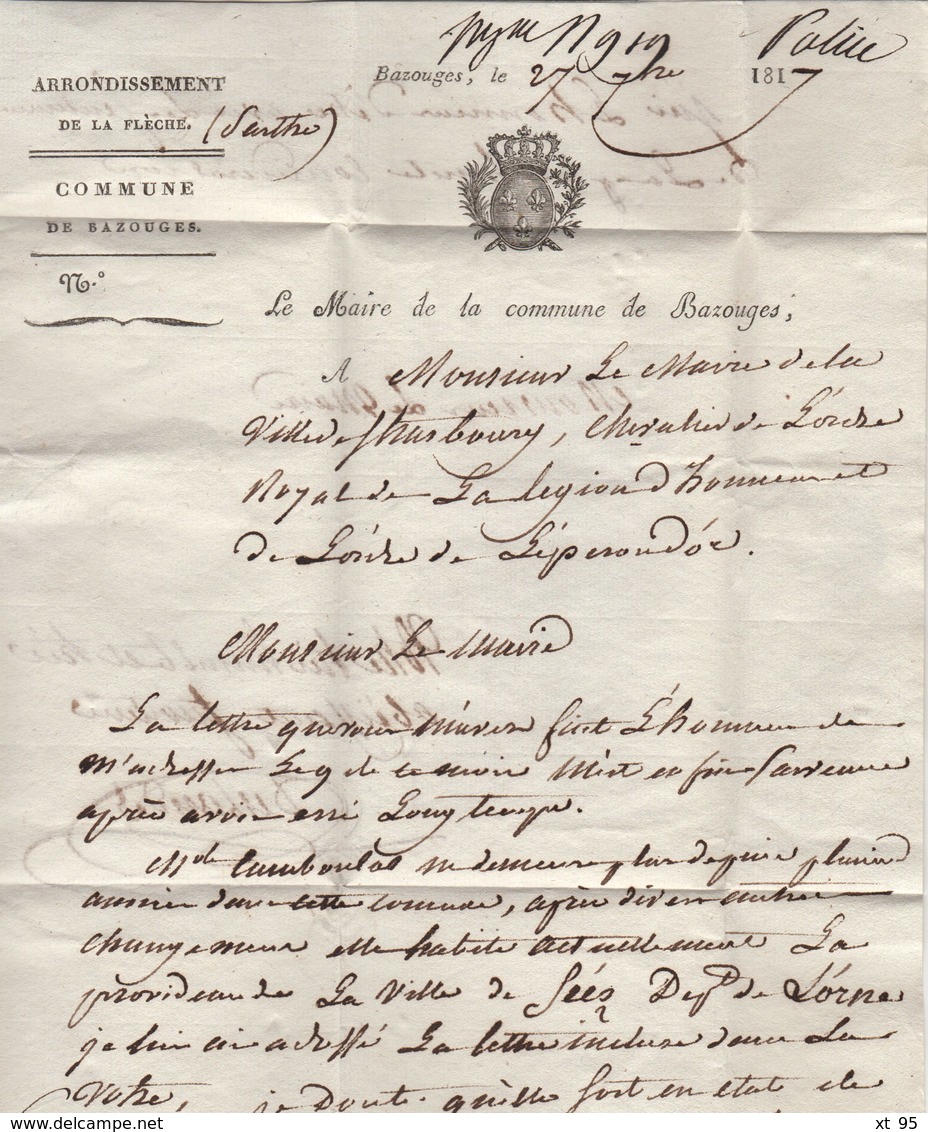 Police
ARRONDISSEMENT
DE LA FLÈCHE. (Sarthe)
Bazouges, le 27 7bre 1817
COMMUNE
DE BAZOUGES.
N.°
Le Maire de la commune de Bazouges,
A Monsieur Le Maire de la
Ville de Strasbourg, Chevalier de L'órdre
Royal de La legion d'honneur et
de L'órdre de L'éperon d'ór.
Monsieur Le Maire
La lettre que vous m'avez fait L'honneur de
m'adresser Le 9 de ce mois M'est en fin parvenue
après avoir erré Longtemps.
Mde ne demeure plus depuis plusieurs
années dans cette commune, après divers autres
changemens elle habite actuellement La
providence de La Ville de Séés Dept de L'órne
je lui ai adressé La lettre incluse dans La
Votre, je Doute qu'elle soit en état de
xt 95